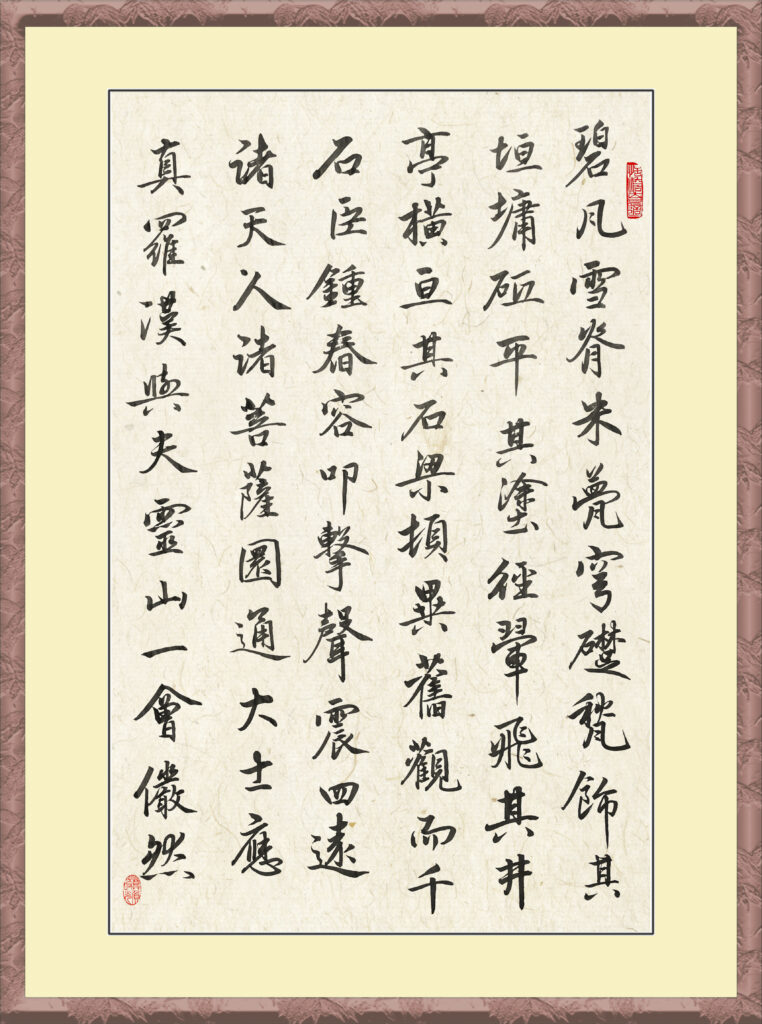 碧凡雪脊朱甍穹礎甃飾其
垣墉砥平其塗徑翬飛其井
亭橫亘其石梁頓異舊觀而千
石臣鍾舂容叩擊聲震四遠
諸天人諸菩薩圓通大士應
真羅漢與夫靈山一會儼然